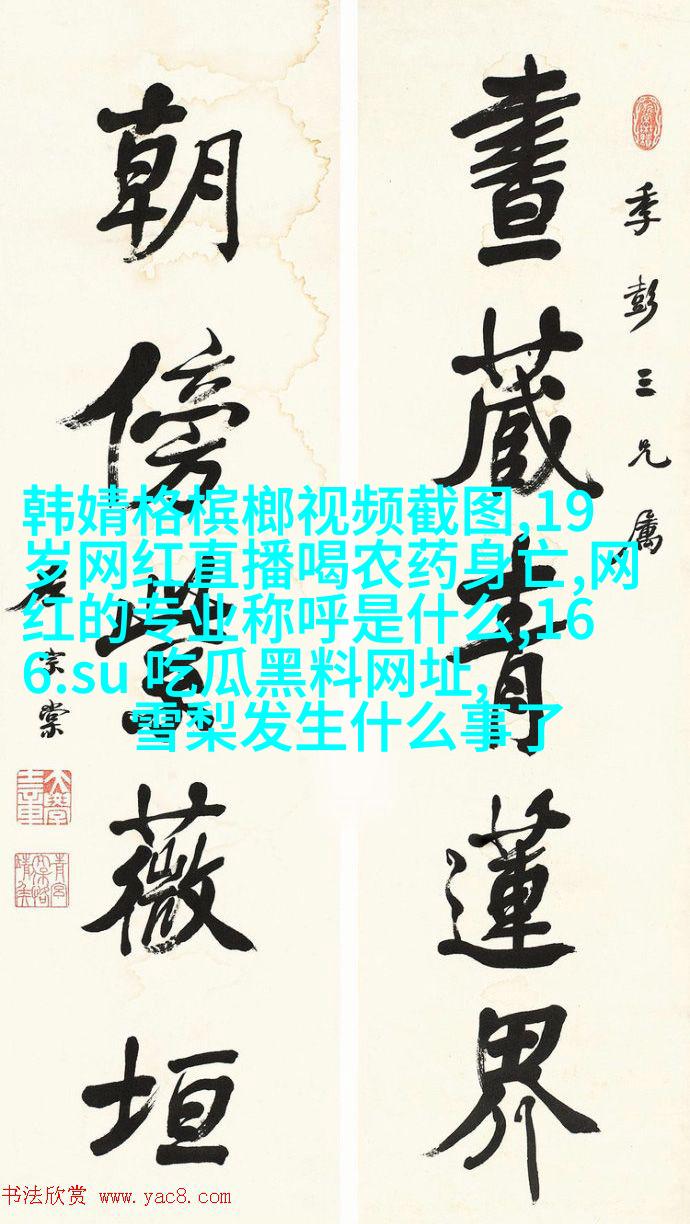 季彭三兄属
書藏青蓮界
朝傍紫薇垣
左宗棠
韩婧格槟榔视频截图,19
岁网红直播喝农药身亡,网
红的专业称呼是什么,16
6.su 吃瓜黑料网址,
雪梨发生什么事了
书法欣赏 www.yac8.com